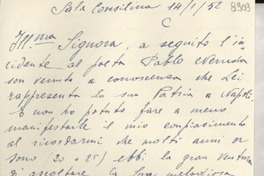 Sala Consilina 14/1/52
8909
C
Ill.ma Signora, a seguito l'in-
cidente al poeta Pablo Neruda
son venuto a conoscenza che Lei
rappresenta la sua Patria a Napoli
E non ho potuto fare a meno
manifestarle il mio compiacimento
al ricordarmi che molti anni or
sono (20 o 25) ebbi la gran ventura
di ascoltare la Sua melodiosa